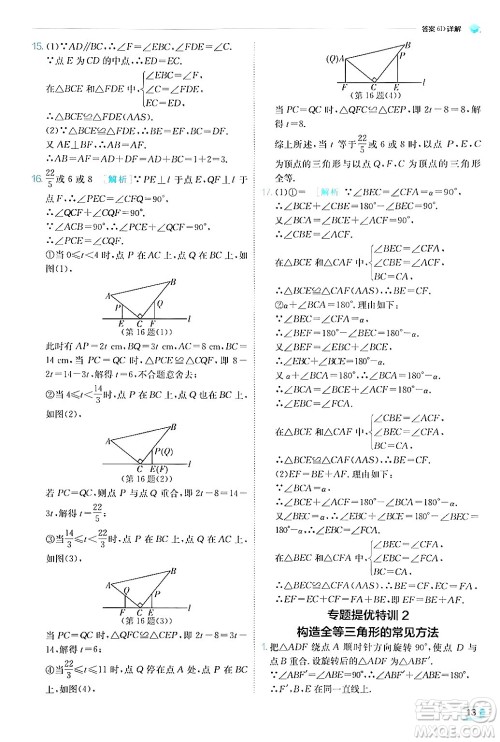 答案 6D 详解
15. (1)∵AD∥BC,∴∠F=∠EBC.
∵点 E 为 CD 的中点,∴DE=CE.
在△BCE 和△FDE 中,
∠EBC=∠F,
∠CEB=∠DEF,
CE=DE,
∴△BCE≌△FDE(AAS).
(2)∵△BCE≌△FDE,
∴BE=EF,BC=DF.
又∵AE⊥BF,∴AB=AF.
∴AB=AD+DF=AD+BC.
16. 22/5 或 6 或 8 [解析] ∵PE⊥l 于点 E,QF⊥l 于点 F,
∴∠PEC=∠CFQ=90°.
∴∠QCF+∠CQF=90°.
∵∠ACB=90°,
∴∠PCE+∠QCF=90°.
∴∠PCE=∠CQF.
①当 0≤t<4 时,点 P 在 AC 上,点 Q 在 BC 上,如图(1),
A B P Q E C F l
(第 16 题(1))
此时有 AP=2t cm,BQ=3t cm,AC=8 cm,BC=14 cm,当 PC=CQ,△PCE≌△CQF,即 8-2t=14-3t,解得 t=6,不合题意舍去;
②当 4≤t<14/3 时,点 P 在 BC 上,点 Q 也在 BC 上,如图(2),
A B P(Q) C E(F) l
(第 16 题(2))
若 PC=CQ,则点 P 与点 Q 重合,即 2t-8=14-3t,解得 t=22/5;
③当 14/3≤t<22/3 时,点 P 在 BC 上,点 Q 在 AC 上,如图(3),
A B Q P F C E l
(第 16 题(3))
当 PC=CQ 时,△QFC≌△CEP,即 2t-8=3t-14,解得 t=6;
④当 22/3≤t≤11 时,点 Q 停在点 A 处,点 P 在 BC 上,如图(4),
(Q)A B P F C E l
(第 16 题(4))
当 PC=QC 时,△QFC≌△CEP,即 2t-8=8,解得 t=8.
综上所述,当 t 等于 22/5 或 6 或 8 时,以点 P,E,C 为顶点的三角形与以点 Q,F,C 为顶点的三角形全等.
17. (1)①= [解析] ∵∠BEC=∠CFA=90°,∠BCA=90°,
∴∠BCE+∠ACF=90°,∠CBE+∠BCE=90°.
∴∠CBE=∠ACF.
在△BCE 和△CAF 中,
∠BEC=∠CFA,
∠CBE=∠ACF,
BC=CA,
∴△BCE≌△CAF(AAS).
∴BE=CF.
②α+∠BCA=180°.理由如下:
∵∠BEC=∠CFA=α,
∴∠BCE+∠CBE=180°-α.
又 α+∠BCA=180°,∴∠BCA=180°-α.
∴∠BCE+∠ACF=180°-α.
∴∠CBE=∠ACF.
在△BCE 和△CAF 中,
∠CBE=∠ACF,
∠BEC=∠CFA,
BC=CA,
∴△BCE≌△CAF(AAS).
∴BE=CF.
(2)EF=BE+AF.理由如下:
∵∠BEC=α,
∴∠BCE+∠CBE=180°-α.
又∠BCA=α,
∴∠BCE+∠ACF=180°-α.
∴∠CBE=∠ACF.
在△BEC 和△CFA 中,
∠CBE=∠ACF,
∠BEC=∠CFA,
BC=CA,
∴△BEC≌△CFA(AAS).
∴BE=CF,CE=AF.
∴EF=CF+CE=BE+AF.
专题提优特训 2
构造全等三角形的常见方法
1. 把△ADF 绕点 A 顺时针方向旋转 90°,使点 D 与点 B 重合.旋转后点 F 对应点为 F′.
∵∠ADF=∠ABE=90°,
∴点 F′,B,E 在同一直线上.
13